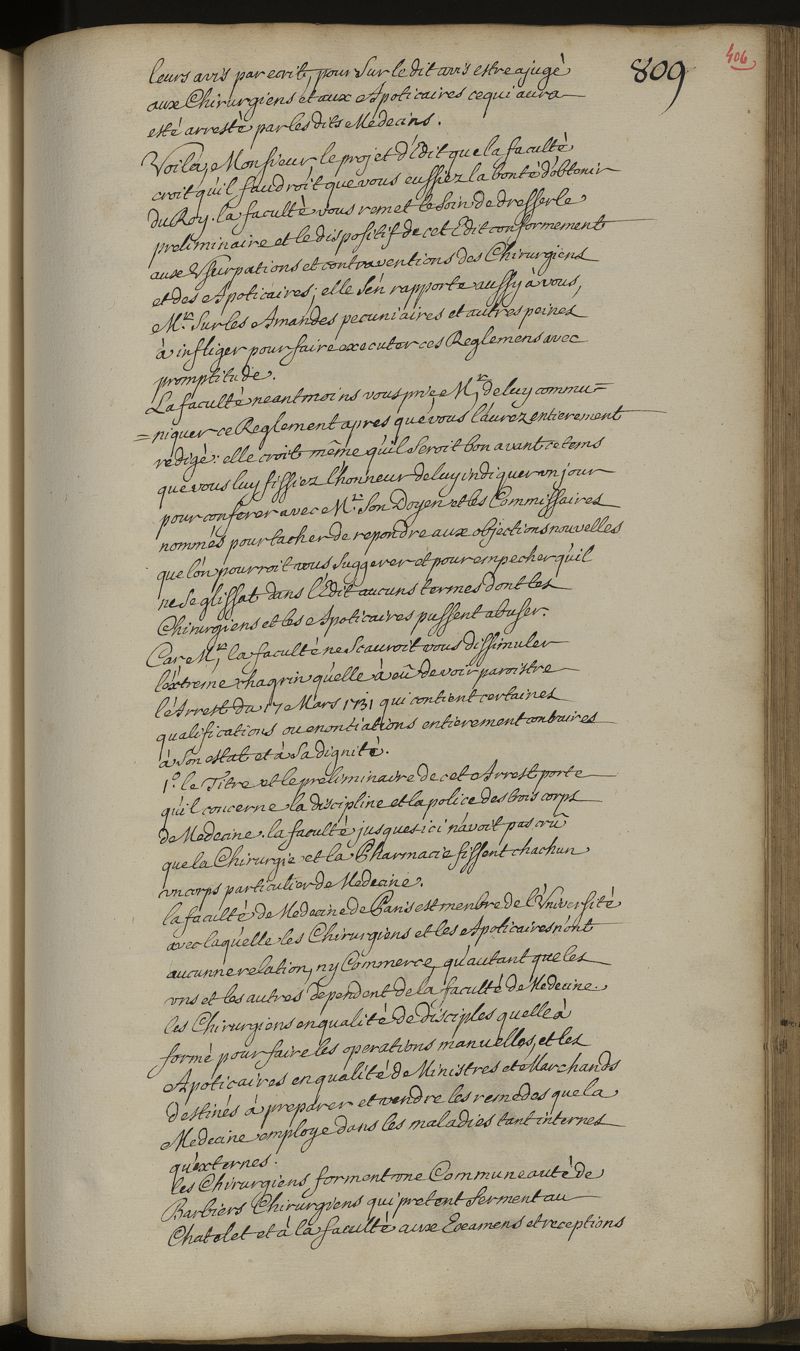 809
406
leurs avis par ecrit, pour sur le dit avis estre ajugé
aux Chirurgiens et aux Apoticaires ce qui aura
esté arresté par les dits Medecins.
Voila, Monsieur, le projet d'Edit que la faculté
croit qu'il faudroit que vous eussiez la bonté d'obtenir
du Roy. la faculté vous remet le soin de dresser le
preliminaire et le dispositif de cet Edit conformement
aux Usurpations et contraventions des Chirurgiens
et des Apoticaires; elle s'en rapporte aussy à vous,
Mr. sur les Amandes pecuniaires et autres peines
à infliger pour faire executer ces Reglemens avec
promptitude.
La faculté neantmoins vous prie Mr, de luy commu=
=niquer ce Reglement apres que vous l'aurez entierement
redigé: elle croit même qu'il seroit bon avant ce tems
que vous luy fissiez l'honneur de luy indiquer un jour
pour conferer avec Mr. Son Doyen et les Commissaires
nommés pour tacher de repondre aux objections nouvelles
que l'on pourroit vous suggerer et pour empecher qu'il
ne se glissat dans l'Edit aucuns termes dont les
Chirurgiens et les Apoticaires pussent abuser.
Car Mr, la faculté ne scauroit vous dissimuler
l'extreme chagrin qu'elle à eû de voir paroistre
l'Arrest du 17 Mars 1731 qui contient certaines
qualifications ou enontiations entierement contraires
à son estat et à sa dignité.
1.º le Titre et le preliminaire de cet Arrest porte
qu'il concerne la discipline et la police des trois corps
de Medecine. la faculté jusques ici n'avoit pas crû
que la Chirurgie et la Pharmacie fissent chachun
un corps particulier de Medecine.
la faculté de Medecine de Paris est menbre de l'Université
avec laquelle les Chirurgiens et les Apoticaires n'ont
aucunne relation, ny Commerce, qu'autant que les
uns et les autres dependent de la faculté de Medecine.
les Chirurgiens en qualité de disciples quelle à
formé pour faire les operations manuelles, et les
Apoticaires en qualité de Ministres et Marchands
destinés à preparer et vendre les remedes que la
Medecine employe dans les maladies tant internes
qu'externes.
les Chirurgiens forment une Communeauté de
Barbiers Chirurgiens qui pretent serment au
Chatelet et à la faculté aux Examens et receptions